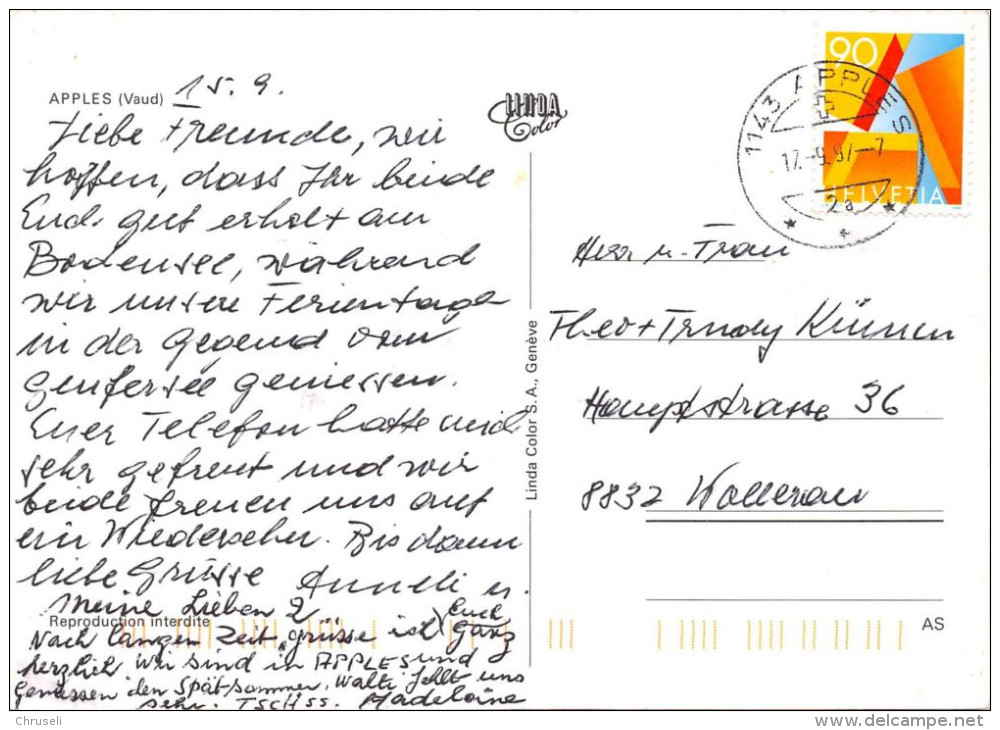 APPLES (Vaud)
15. 9.
Liebe Freunde, wir
hoffen, dass Ihr beide
Euch gut erholt am
Bodensee, während
wir unsere Ferientage
in der Gegend vom
Genfersee geniessen.
Euer Telefon hatte mich
sehr gefreut und wir
beide freuen uns auf
ein Wiedersehen. Bis dann
liebe Grüsse Anneli u.
Meine Lieben 2
Nach langer Zeit grüsse ich Euch ganz
herzlich wir sind in APPLES und
Geniessen den Spätsommer. Walti fehlt uns
sehr. TSCHSS. Madeleine
Reproduction interdite
LINDA
Color
Linda Color S.A., Genève
90
HELVETIA
1143 APPLES
17.-9.97-7
2a
Herr u. Frau
Theo + Trudy Künnen
Hauptstrasse 36
8832 Wollerau
AS
Chruseli
www.delcampe.net